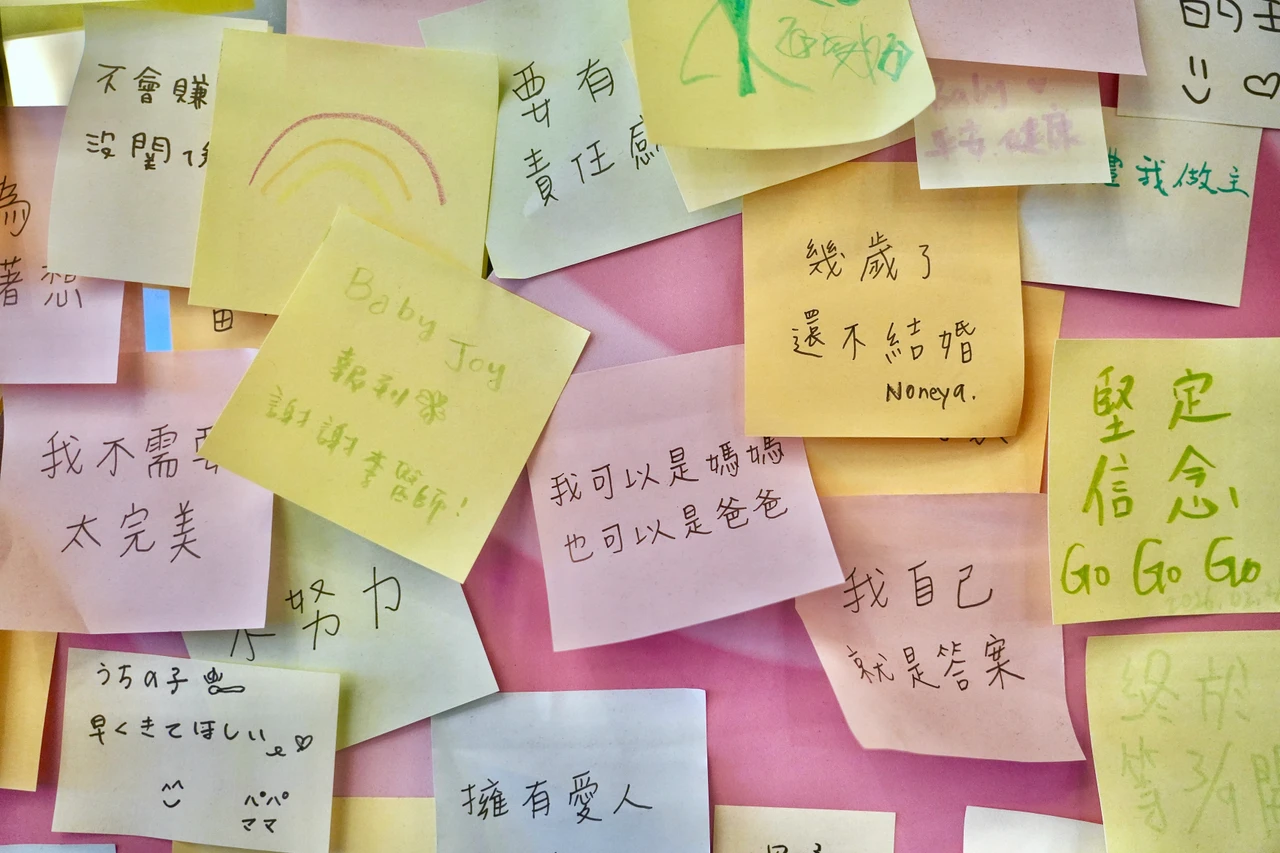 不會賺
沒關係
為
著想
要有
責任感
Baby ♡
平安 健康
的主
我做主
幾歲了
還不結婚
Noneya.
Baby Joy
報到
謝謝李醫師!
我不需要
太完美
我可以是媽媽
也可以是爸爸
堅定
信念!
Go Go Go
我自己
就是答案
不努力
うちの子
早くきてほしい
パパ
ママ
擁有愛人
終於
等3/9開